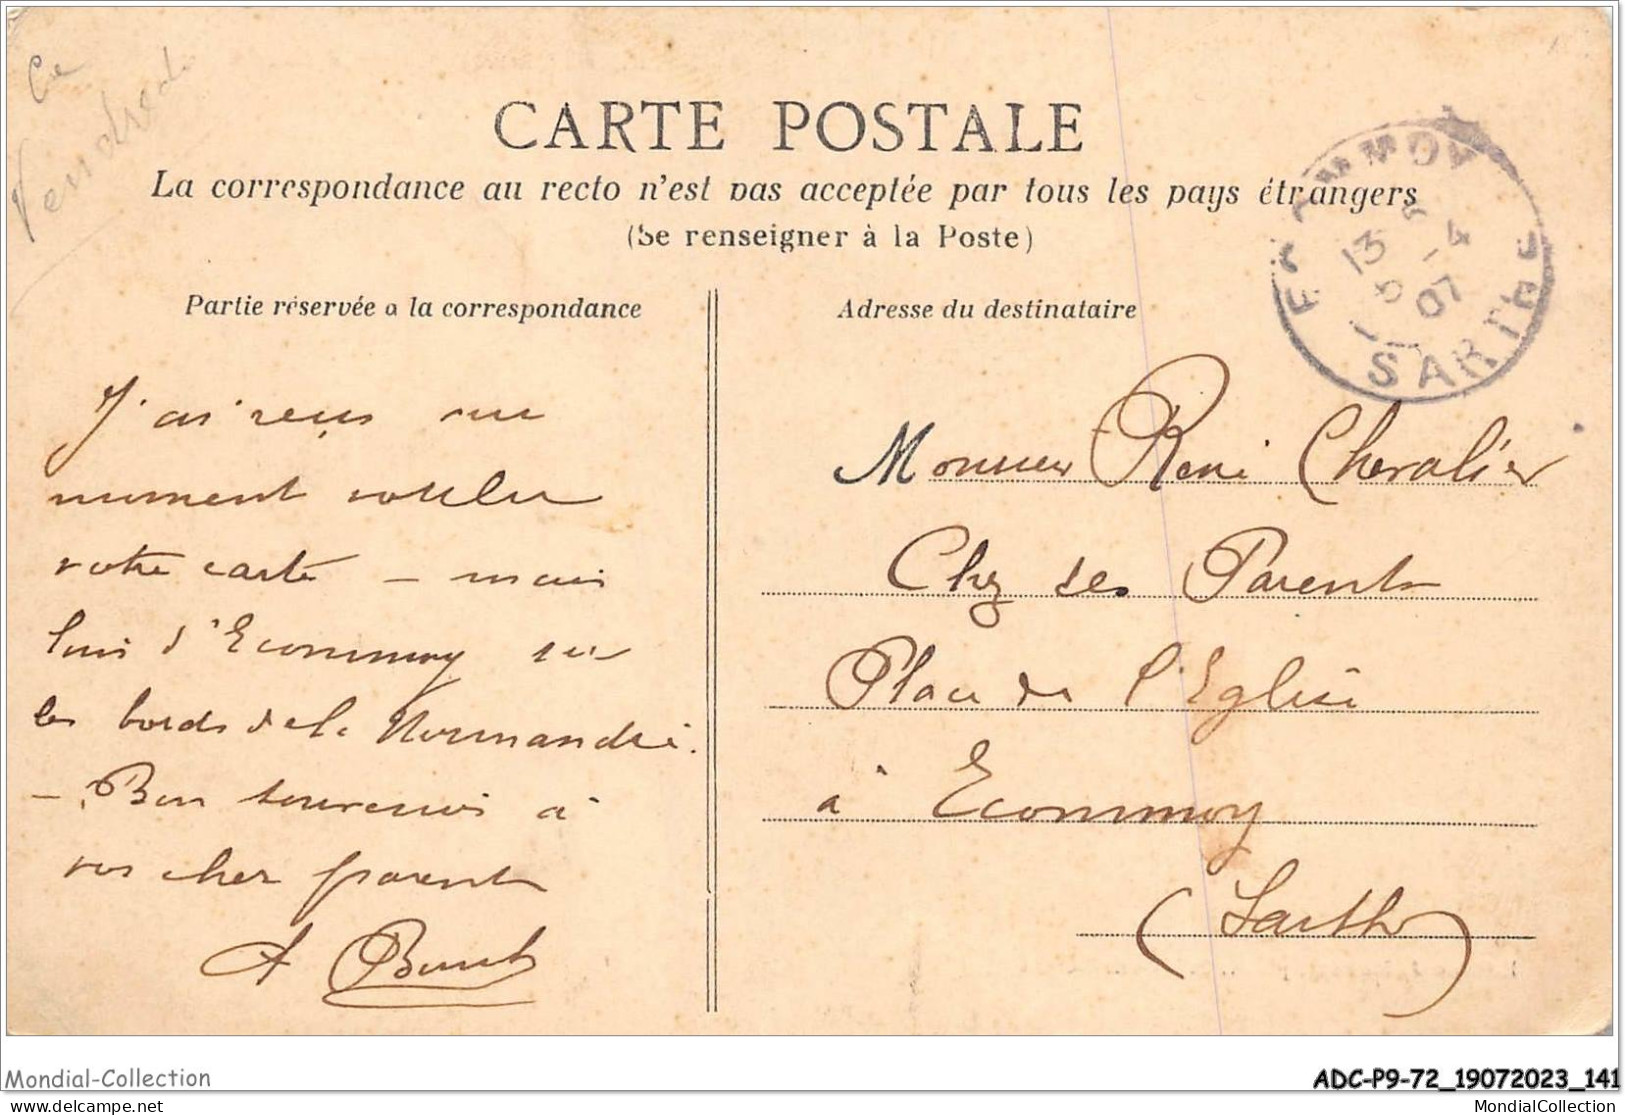 Ce
Vendredi
CARTE POSTALE
La correspondance au recto n'est pas acceptée par tous les pays étrangers
(Se renseigner à la Poste)
Partie réservée à la correspondance
Adresse du destinataire
ECOMMOY
13
5-4
07
SARTHE
J'ai reçu
moment
votre carte – mais
d'Ecommoy sur
les bords de la Normandie.
– Bon souvenir à
vos cher parents
A
Monsieur René Chevalier
Chez ses Parents
Place de l'Eglise
à Ecommoy
(Sarthe)
Mondial-Collection
ADC-P9-72_19072023_141
MondialCollection.com
MondialCollection